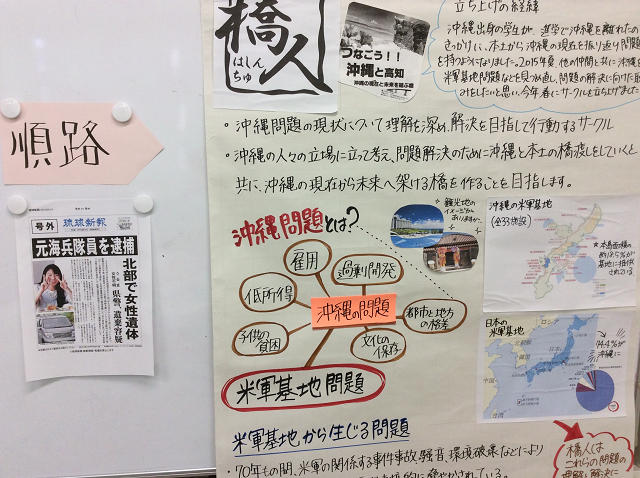 順路
号外 琉球新報
元海兵隊員を逮捕
北部で女性遺体
県警、遺棄容疑
橋人
はしんちゅ
つなごう!!
沖縄と高知
沖縄の現在と未来を結ぶ橋
立ち上げの経緯
沖縄出身の学生が、進学で沖縄を離れたのを
きっかけに、本土から沖縄の現在を振り返り問題
を持つようになりました。2015年夏、他の仲間と共に沖縄
米軍基地問題などを見つめ直し、問題の解決に向けた取
みをしたいと思い、今年春にサークルを立ち上げました
・沖縄問題の現状について理解を深め、解決を目指して行動するサークル
・沖縄の人々の立場に立って考え、問題解決のために沖縄と本土の橋渡しをしていくと
共に、沖縄の現在から未来へ架ける橋を作ることを目指します。
沖縄問題とは?
観光地の
イメージが
ありますが…
雇用
過剰開発
低所得
沖縄の問題
都市と地方の格差
子供の貧困
文化の保存
米軍基地問題
沖縄の米軍基地
(全33施設)
日本の
米軍基地
ロシア
中国
北朝鮮
韓国
日本
台湾
74.4%が
沖縄に
米軍基地から生じる問題
・70年もの間、米軍の関係する事件事故、騒音、環境破壊などにより
脅やかされている。
橋人は
これらの問題の
理解と解決に